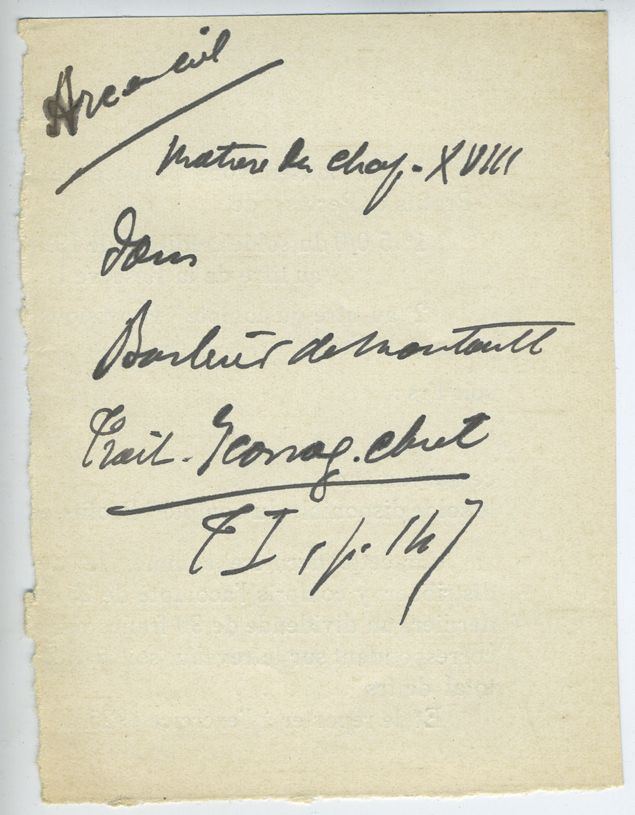 Arc en ciel
Matière du chap. XVIII
dans
Barbier de Montault
Trait. Iconog. chret
T I, p. 147